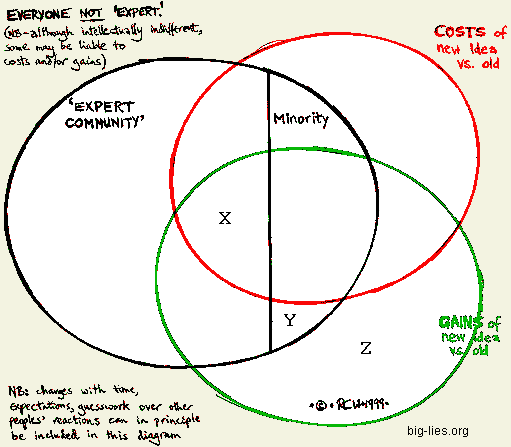 EVERYONE NOT 'EXPERT'.
(NB-although intellectually indifferent,
some may be liable to
costs and/or gains)
COSTS of
new idea
vs. old
'EXPERT
COMMUNITY'
Minority
X
Y
Z
GAINS of
new idea
vs. old
NB: changes with time,
expectations, guesswork over other
peoples' reactions can in principle
be included in this diagram
1999
big-lies.org